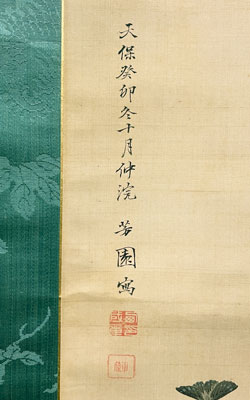 天保癸卯冬十月仲浣 芳園寫